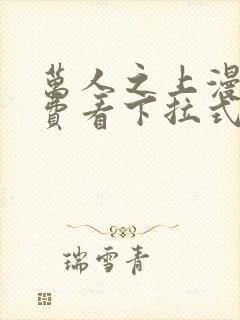 萬人之上漫
費看下拉式
瑞雪青